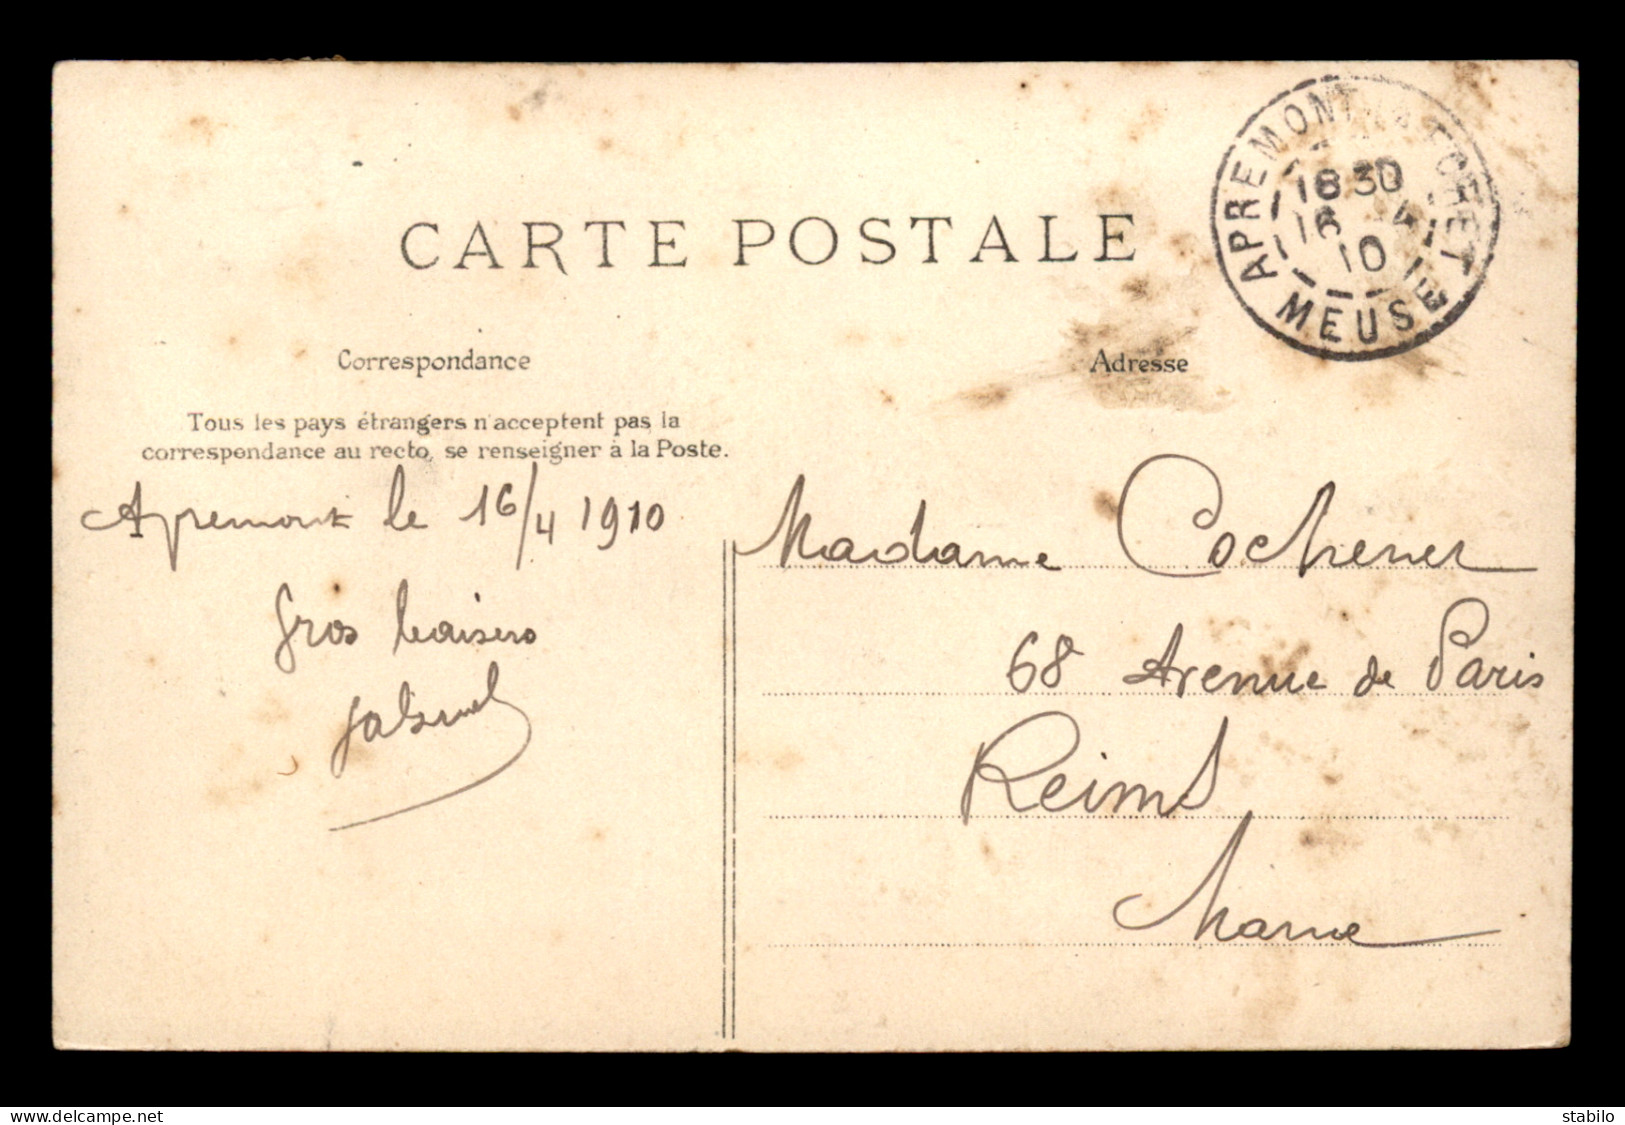 CARTE POSTALE
APREMONT LA FORET
18 30
16 4
10
MEUSE
Correspondance
Adresse
Tous les pays étrangers n'acceptent pas la
correspondance au recto, se renseigner à la Poste.
Apremont le 16/4 1910
Gros baisers
Gabriel
Madame Cochener
68 Avenue de Paris
Reims
Marne
delcampe.net
stabilo